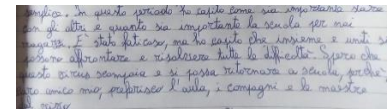 semplice. In questo periodo ho capito come sia importante stare
con gli altri e quanto sia importante la scuola per noi
ragazzi. È stato faticoso, ma ho capito che insieme e uniti si
possono affrontare e risolvere tutte le difficoltà. Spero che
questo virus scompaia e si possa ritornare a scuola, perché
caro amico mio, preferisco l'aula, i compagni e le maestre